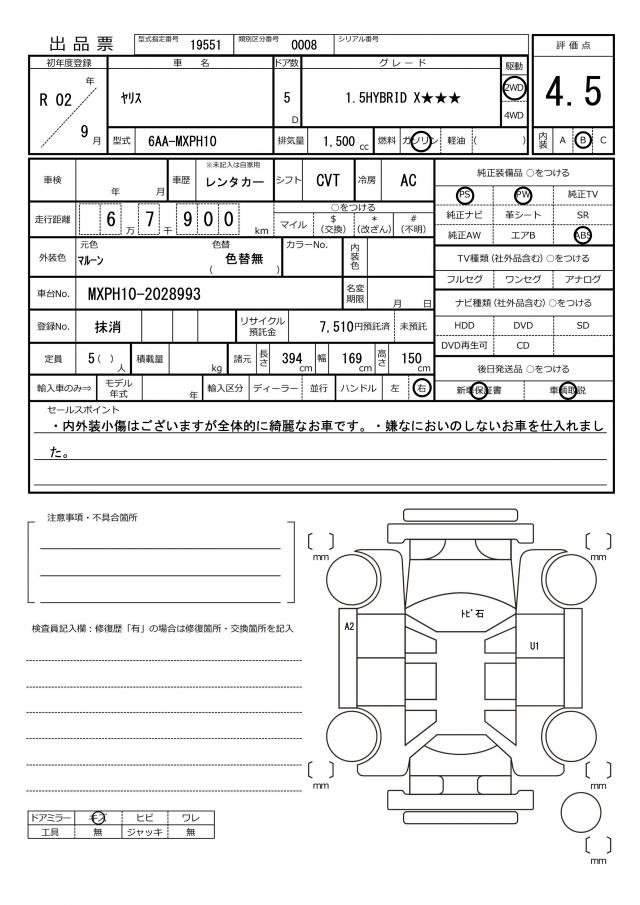 出品票 型式指定番号 19551 類別区分番号 0008 シリアル番号
評価点
4.5
内装 A B C
初年度登録 車名 ドア数 グレード 駆動
R 02 年 9 月 ﾔﾘｽ 5 D 1.5HYBRID X★★★ 2WD 4WD
型式 6AA-MXPH10 排気量 1,500 cc 燃料 ガソリン 軽油 ( )
車検 年 月 車歴 ※未記入は自家用 レンタカー シフト CVT 冷房 AC
走行距離 6 万 7 千 9 0 0 km ○をつける マイル $ (交換) * (改ざん) # (不明)
外装色 元色 ﾏﾙｰﾝ 色替 ( 色替無 ) カラーNo. 内装色
車台No. MXPH10-2028993 名変期限 月 日
登録No. 抹消 リサイクル預託金 7,510円預託済 未預託
定員 5 ( ) 人 積載量 kg 諸元 長さ 394 cm 幅 169 cm 高さ 150 cm
輸入車のみ⇒ モデル年式 年 輸入区分 ディーラー 並行 ハンドル 左 右
純正装備品 ○をつける
PS PW 純正TV
純正ナビ 革シート SR
純正AW エアB ABS
TV種類 (社外品含む) ○をつける
フルセグ ワンセグ アナログ
ナビ種類 (社外品含む) ○をつける
HDD DVD SD
DVD再生可 CD
後日発送品 ○をつける
新車保証書 車輌取説
セールスポイント
・内外装小傷はございますが全体的に綺麗なお車です。・嫌なにおいのしないお車を仕入れまし
た。
注意事項・不具合箇所
検査員記入欄：修復歴「有」の場合は修復箇所・交換箇所を記入
〔 〕 mm 〔 〕 mm
ﾄﾋﾞ石
A2
U1
〔 〕 mm 〔 〕 mm
〔 〕 mm
ドアミラー キズ ヒビ ワレ
工具 無 ジャッキ 無